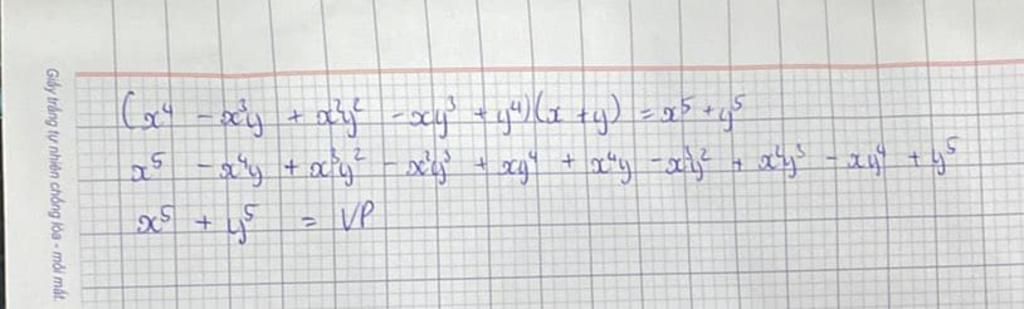 Giấy trắng tự nhiên chống lóa - mỏi mắt.
(x⁴ - x³y + x²y² - xy³ + y⁴)(x + y) = x⁵ + y⁵
x⁵ - x⁴y + x³y² - x²y³ + xy⁴ + x⁴y - x³y² + x²y³ - xy⁴ + y⁵
x⁵ + y⁵ = VP